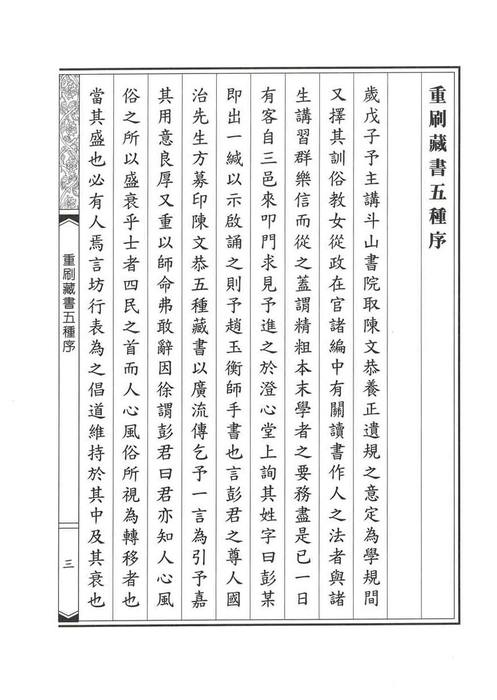 重刷藏書五種序
歲戊子予主講斗山書院取陳文恭養正遺規之意定為學規間
又擇其訓俗教女從政在官諸編中有關讀書作人之法者與諸
生講習群樂信而從之蓋謂精粗本末學者之要務盡是已一日
有客自三邑來叩門求見予進之於澄心堂上詢其姓字曰彭某
即出一緘以示啟誦之則予趙玉衡師手書也言彭君之尊人國
治先生方募印陳文恭五種藏書以廣流傳乞予一言為引予嘉
其用意良厚又重以師命弗敢辭因徐謂彭君曰君亦知人心風
俗之所以盛衰乎士者四民之首而人心風俗所視為轉移者也
當其盛也必有人焉言坊行表為之倡道維持於其中及其衰也
重刷藏書五種序
三